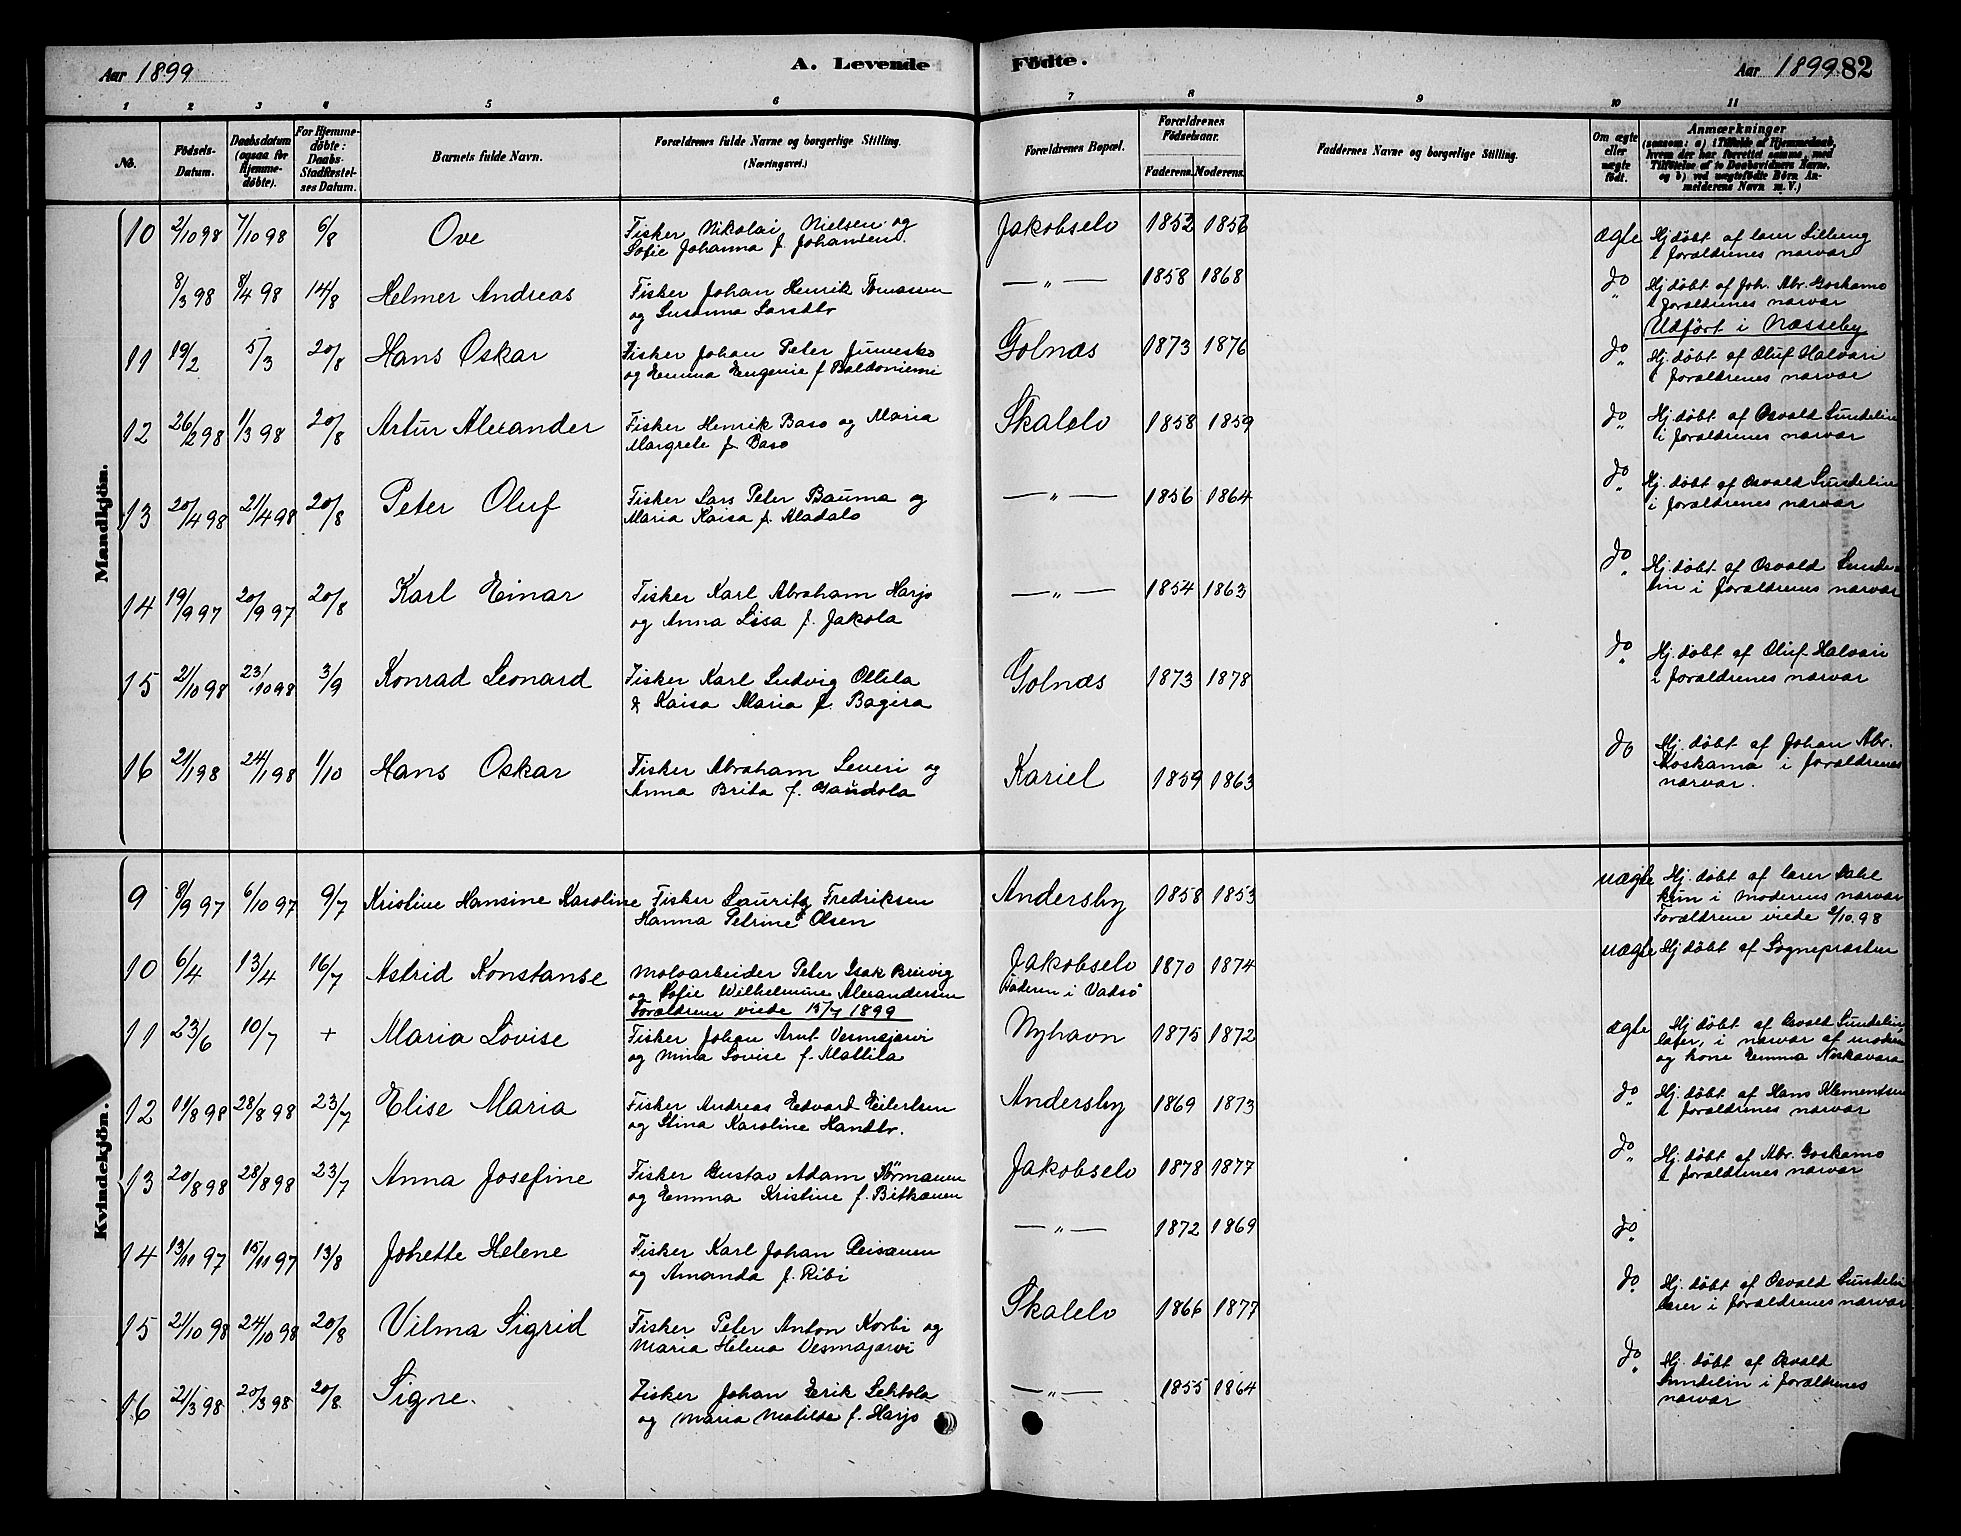 Aar 1899
A. Levende
Fødte.
Aar 1899
82
1 2 3 4 5 6 7 8 9 10 11
No.
Fødsels-Datum.
Daabsdatum (ogsaa for Hjemme-døbte).
For Hjemme-døbte: Daabs-Stadfæstel-ses Datum.
Barnets fulde Navn.
Forældrenes fulde Navne og borgerlige Stilling.
(Næringsvei.)
Forældrenes Bopæl.
Forældrenes Fødselsaar.
Faderens. Moderens.
Faddernes Navne og borgerlige Stilling.
Om ægte eller uægte født.
Anmærkninger
Mandkjön.
10 2/10 98 7/10 98 6/8 Ove Fisker Nikolai Nielsen og Jakobselv 1852 1856 ægte Hj. døbt af lærer
Sofie Johanna f. Johansen. i forældrenes nærvær
8/3 98 8/4 98 14/8 Helmer Andreas Fisker Johan Henrik Tomassen — „ — 1858 1868 do Hj. døbt af Joh. Abr. Goskamo
og Susanna Larsdtr i forældrenes nærvær
Udført i Næsseby
11 19/2 5/3 20/8 Hans Oskar Fisker Johan Peter Golnæs 1873 1876 do Hj. døbt af Oluf Halvari
og Emma Eugenie f i forældrenes nærvær
12 26/2 98 1/3 98 20/8 Artur Alexander Fisker Henrik Baso og Maria Skalelv 1858 1859 do Hj. døbt af Osvald Sundelin
Margrete f. Baso i forældrenes nærvær
13 20/4 98 21/4 98 20/8 Peter Oluf Fisker Lars Peter Bauma og — „ — 1856 1864 do Hj. døbt af Osvald Sundelin
Maria Kaisa f. Aladalo i forældrenes nærvær
14 19/9 97 20/9 97 20/8 Karl Einar Fisker Karl Abraham Harjo — „ — 1854 1863 do Hj. døbt af Osvald Sunde-
og Anna Lisa f. Jakola lin i forældrenes nærvær
15 21/10 98 23/10 98 3/9 Konrad Leonard Fisker Karl Ludvig Ollila Golnæs 1873 1878 do Hj. døbt af Oluf Halvari
& Kaisa Maria f. Bagira i forældrenes nærvær
16 21/1 98 24/1 98 1/10 Hans Oskar Fisker Abraham Leveri og Kariel 1859 1863 do Hj. døbt af Johan Abr.
Anna Brita f. Koskama i forældrenes
nærvær.
Kvindekjön.
9 8/9 97 6/10 97 9/7 Kristine Hansine Karoline Fisker Lauritz Fredriksen Andersby 1858 1853 uægte Hj. døbt af lærer
& Hanna Petrine Olsen i moderens nærvær
Forældrene viede 2/10. 98
10 6/4 13/4 16/7 Astrid Konstanse Moloarbeider Peter Isak Breivig Jakobselv 1870 1874 uægte Hj. døbt af Sognepræsten
og Sofie Wilhelmine Alexandersen Faderen i Vadsö
Forældrene viede 15/7 1899
11 23/6 10/7 + Maria Lovise Fisker Johan Arnt Vesmajarvi Nyhavn 1875 1872 ægte Hj. døbt af Osvald Sundelin,
og Mina Lovise f. Mattila i nærvær af
og kone Emma
12 11/8 98 28/8 98 23/7 Elise Maria Fisker Andreas Edvard Eilertsen Andersby 1869 1873 do Hj. døbt af Hans Klementsen
og Stina Karoline Hansdtr. i forældrenes nærvær
13 20/8 98 28/8 98 23/7 Anna Josefine Fisker Gustav Adam Törmanen Jakobselv 1878 1877 do Hj. døbt af Abr. Goskamo
og Emma Kristine f. Bitkanen i forældrenes nærvær
14 13/11 97 15/11 97 13/8 Johette Helene Fisker Karl Johan — „ — 1872 1869 do
og Amanda f. Ribi
15 21/10 98 24/10 98 20/8 Vilma Sigrid Fisker Peter Anton Korbi og Skalelv 1866 1877 do Hj. døbt af Osvald Sundelin
Maria Helena Vesmajarvi lærer i forældrenes nærvær
16 21/3 98 20/3 98 20/8 Signe. Fisker Johan Erik Lehtola — „ — 1855 1864 do Hj. døbt af Osvald
og Maria Matilde f. Harjo Sundelin i forældrenes
nærvær